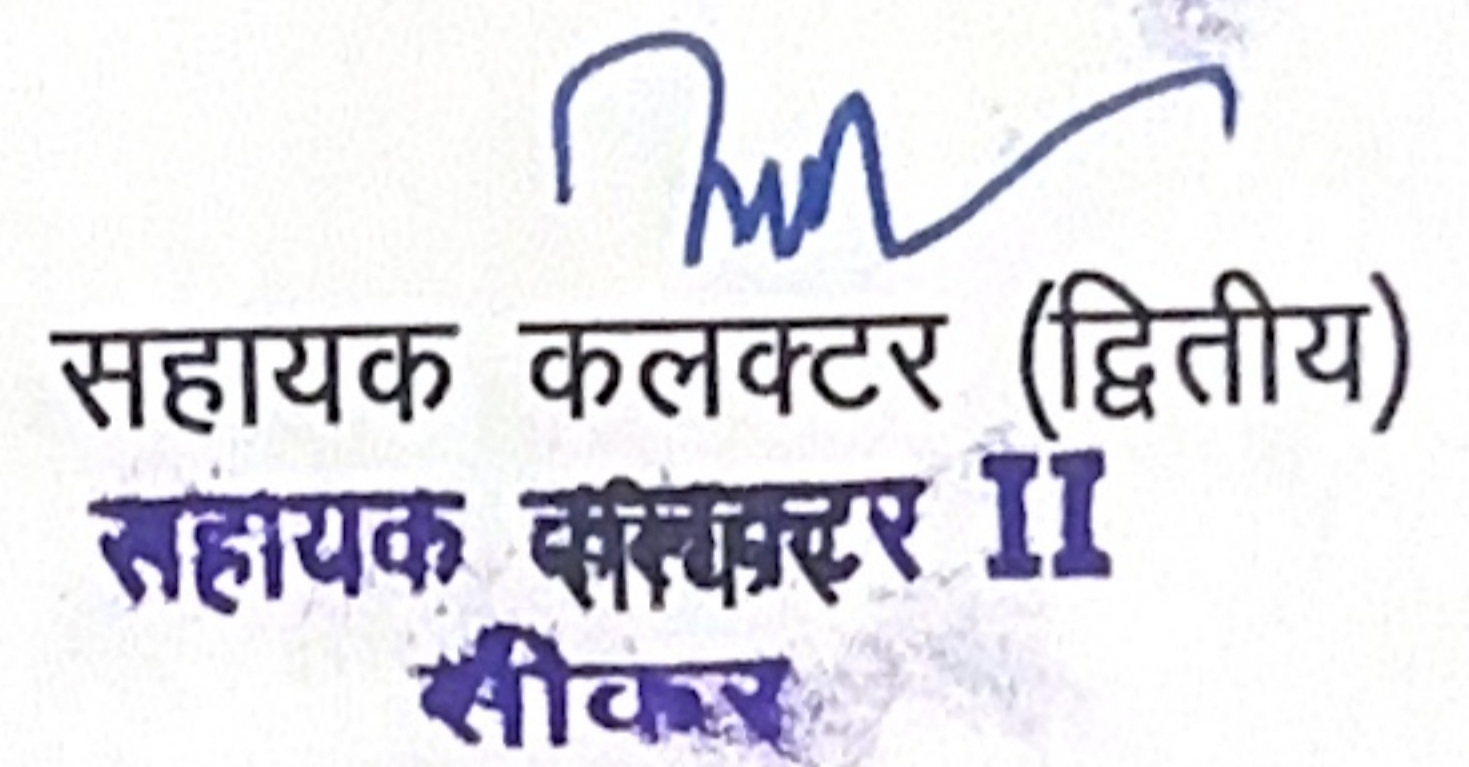 सहायक कलक्टर (द्वितीय)
सहायक कलक्टर II
सीकर